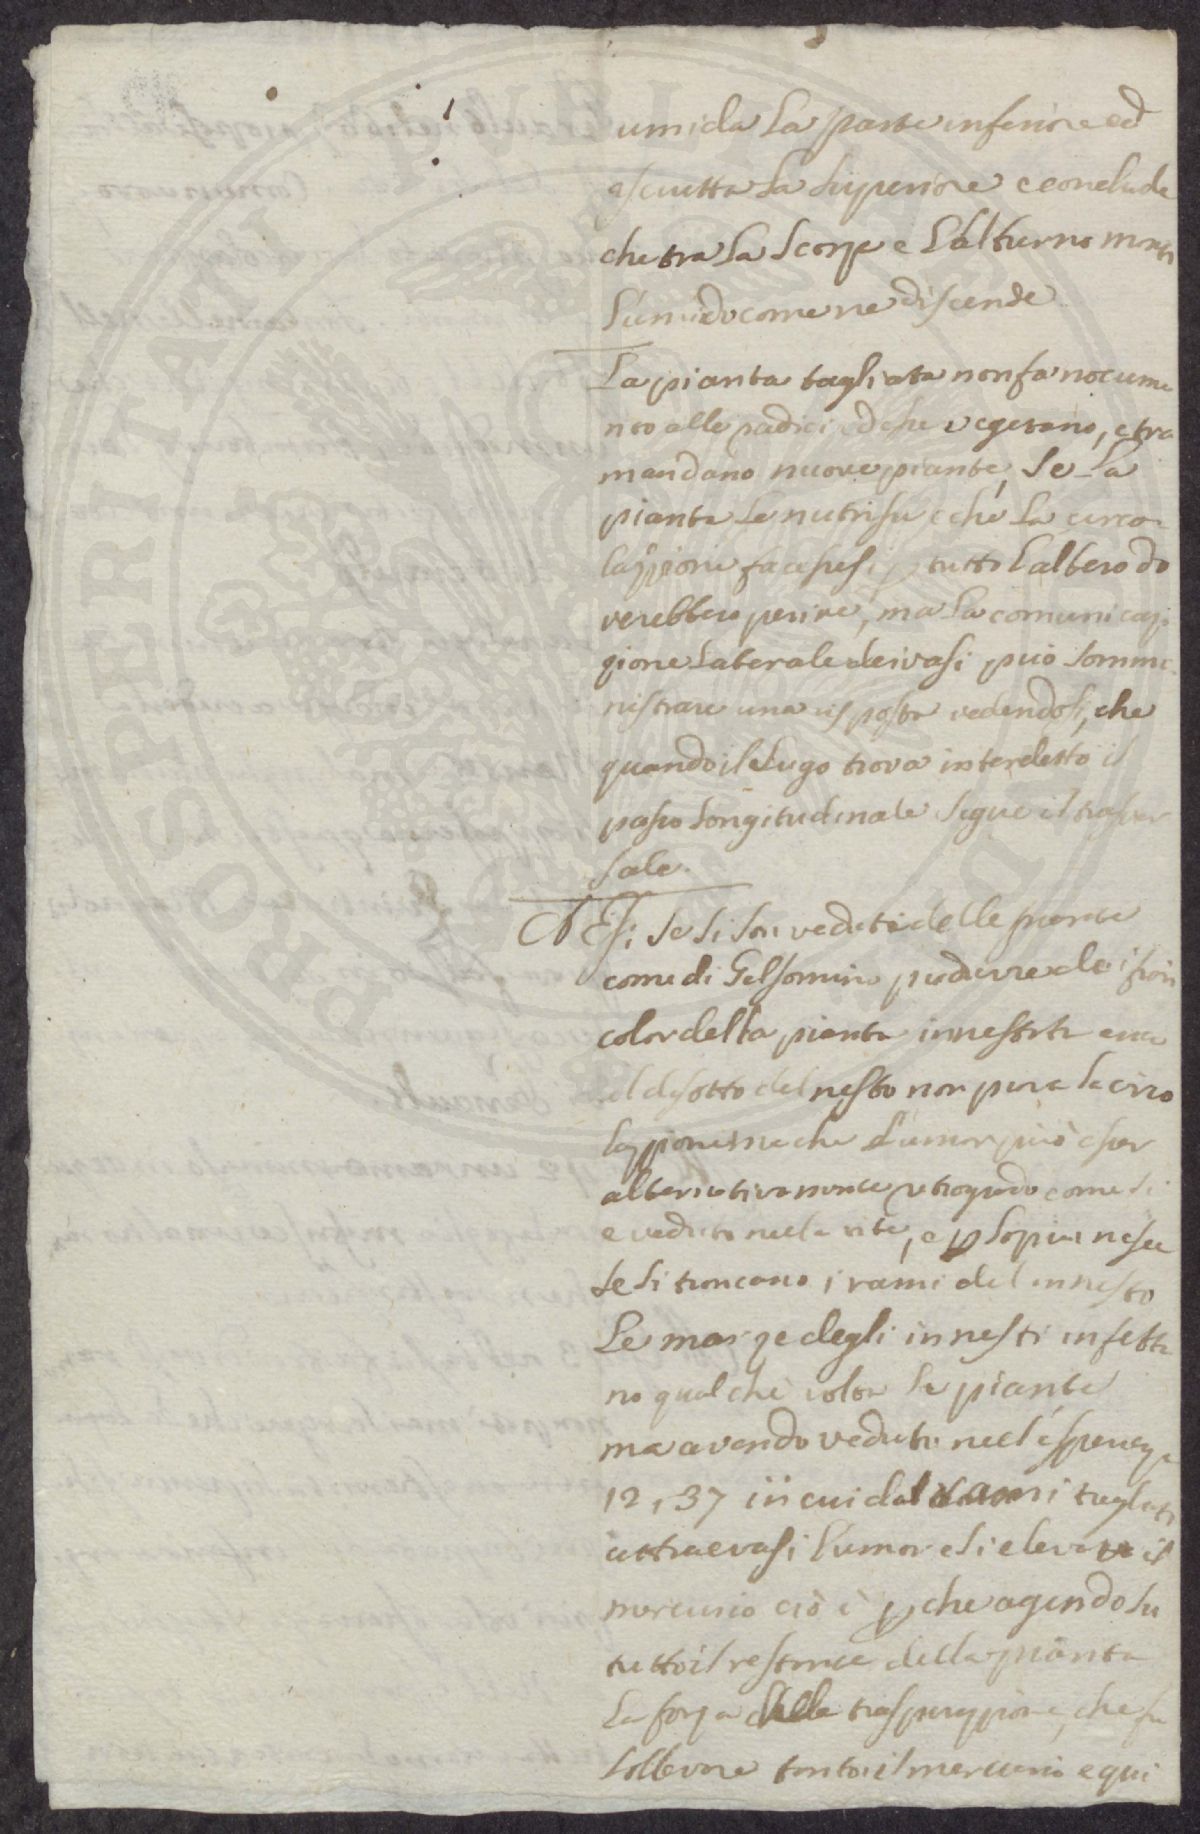 umida la parte inferiore ed
asciutta la superiore e conclude
che tra la scorza e l'alburno monti
l'umido come ne discende
La pianta tagliata non fa nocume
nto alle radici ed che vegetano, e tra
mandano nuove piante, se la
pianta le nutrisse e che la circo-
lazzione facessesi p tutto l'albero do
verebbero perire, ma la comunicaz
zione laterale dei vasi può sommi
nistrare una risposta vedendosi, che
quando il sugo trova interdetto il
passo longitudinale segue il trasver
sale.
Si se si son vedute delle piante
come di Gelsomino produrre de i fiori
color della pianta innestata
al disotto del nesto non pura la circo
lazzione ma che l'umor può esser
alternativamente retrogrado come si
e veduto nella vite, e p lo piu nasce
se si troncano i rami del innesto
Le marze degli innesti infetta
no qualche volta le piante
ma avendo veduto nell'esperienza
12, 37 in cui dal rami tagliati
attraevasi l'umore si elevava il
mercurio ciò è p che agendo su
tutto il restante della pianta
la forza della traspirazzione, che fa
sollevare tanto il mercurio e qui
PROSPERITATI PUBLI